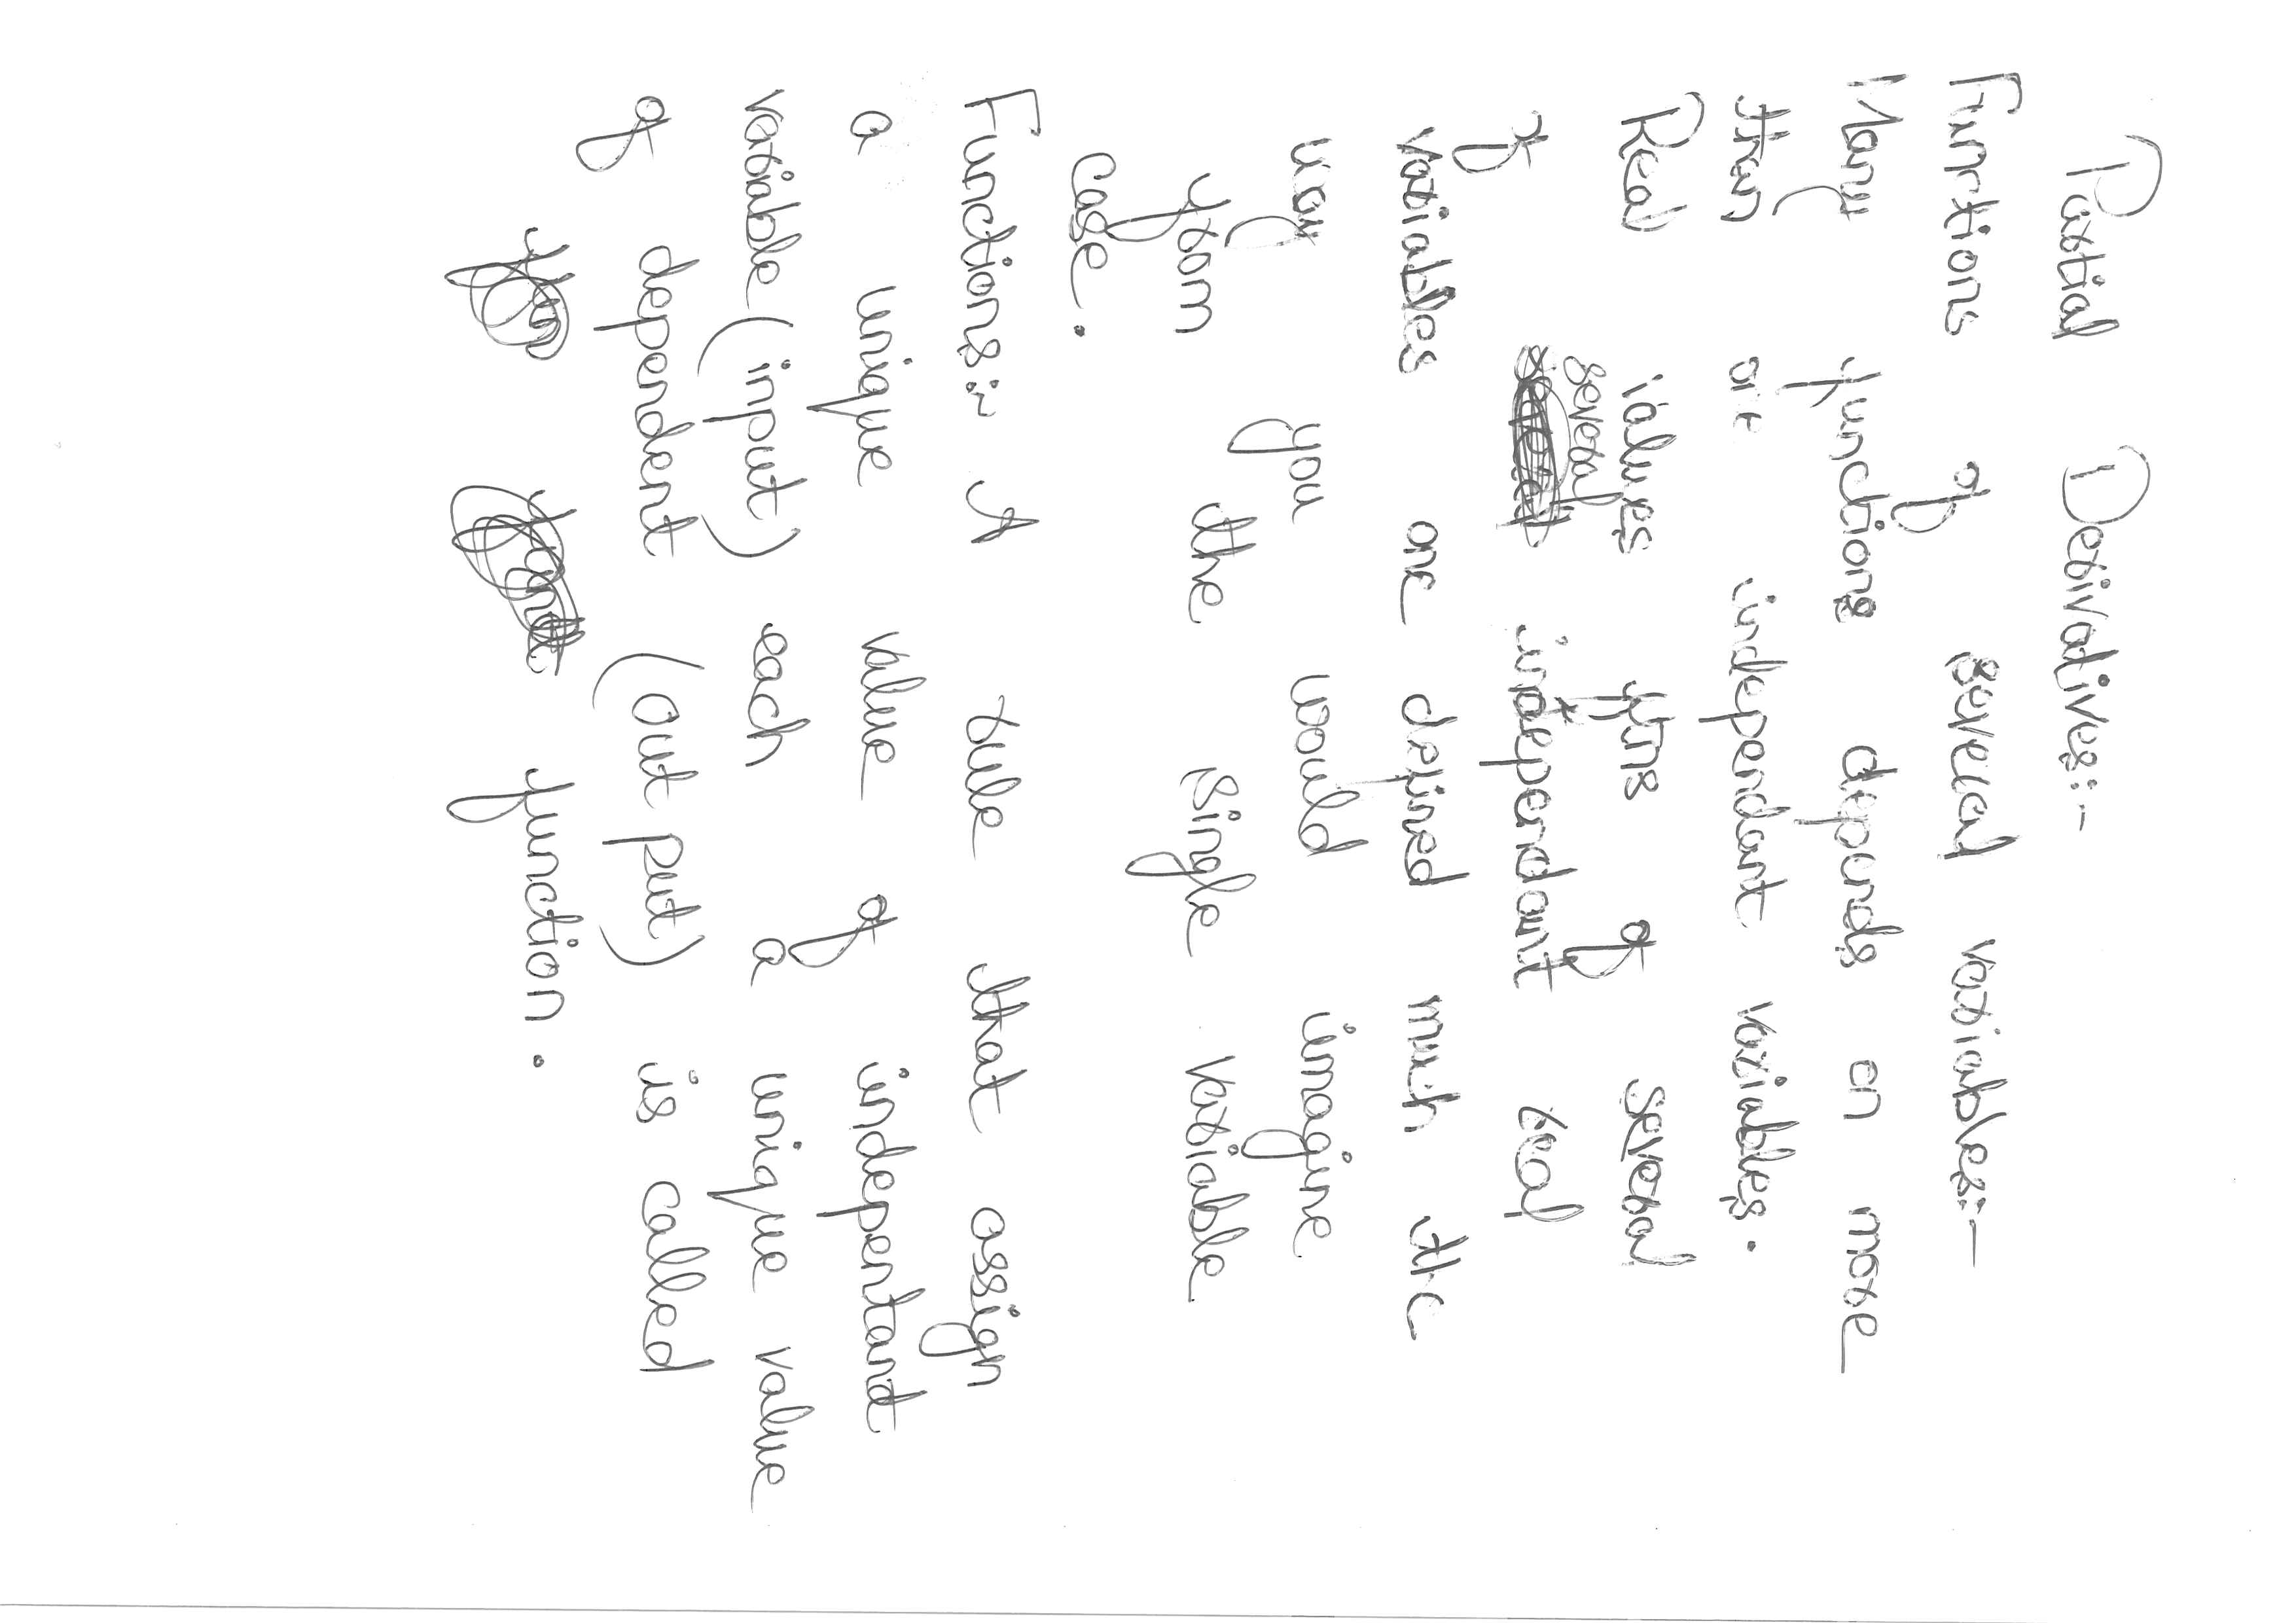 Partial Derivatives:-
Functions of several variables:-
Many functions depends on more
than one independant variables.
Real values ftns of several
of several independant real
variables are defined much the
way you would imagine
from the single variable
case.
Functions:- A rule that assign
a unique value of indepentant
variable (input) each a unique value
of dependent (out put) is called
function.